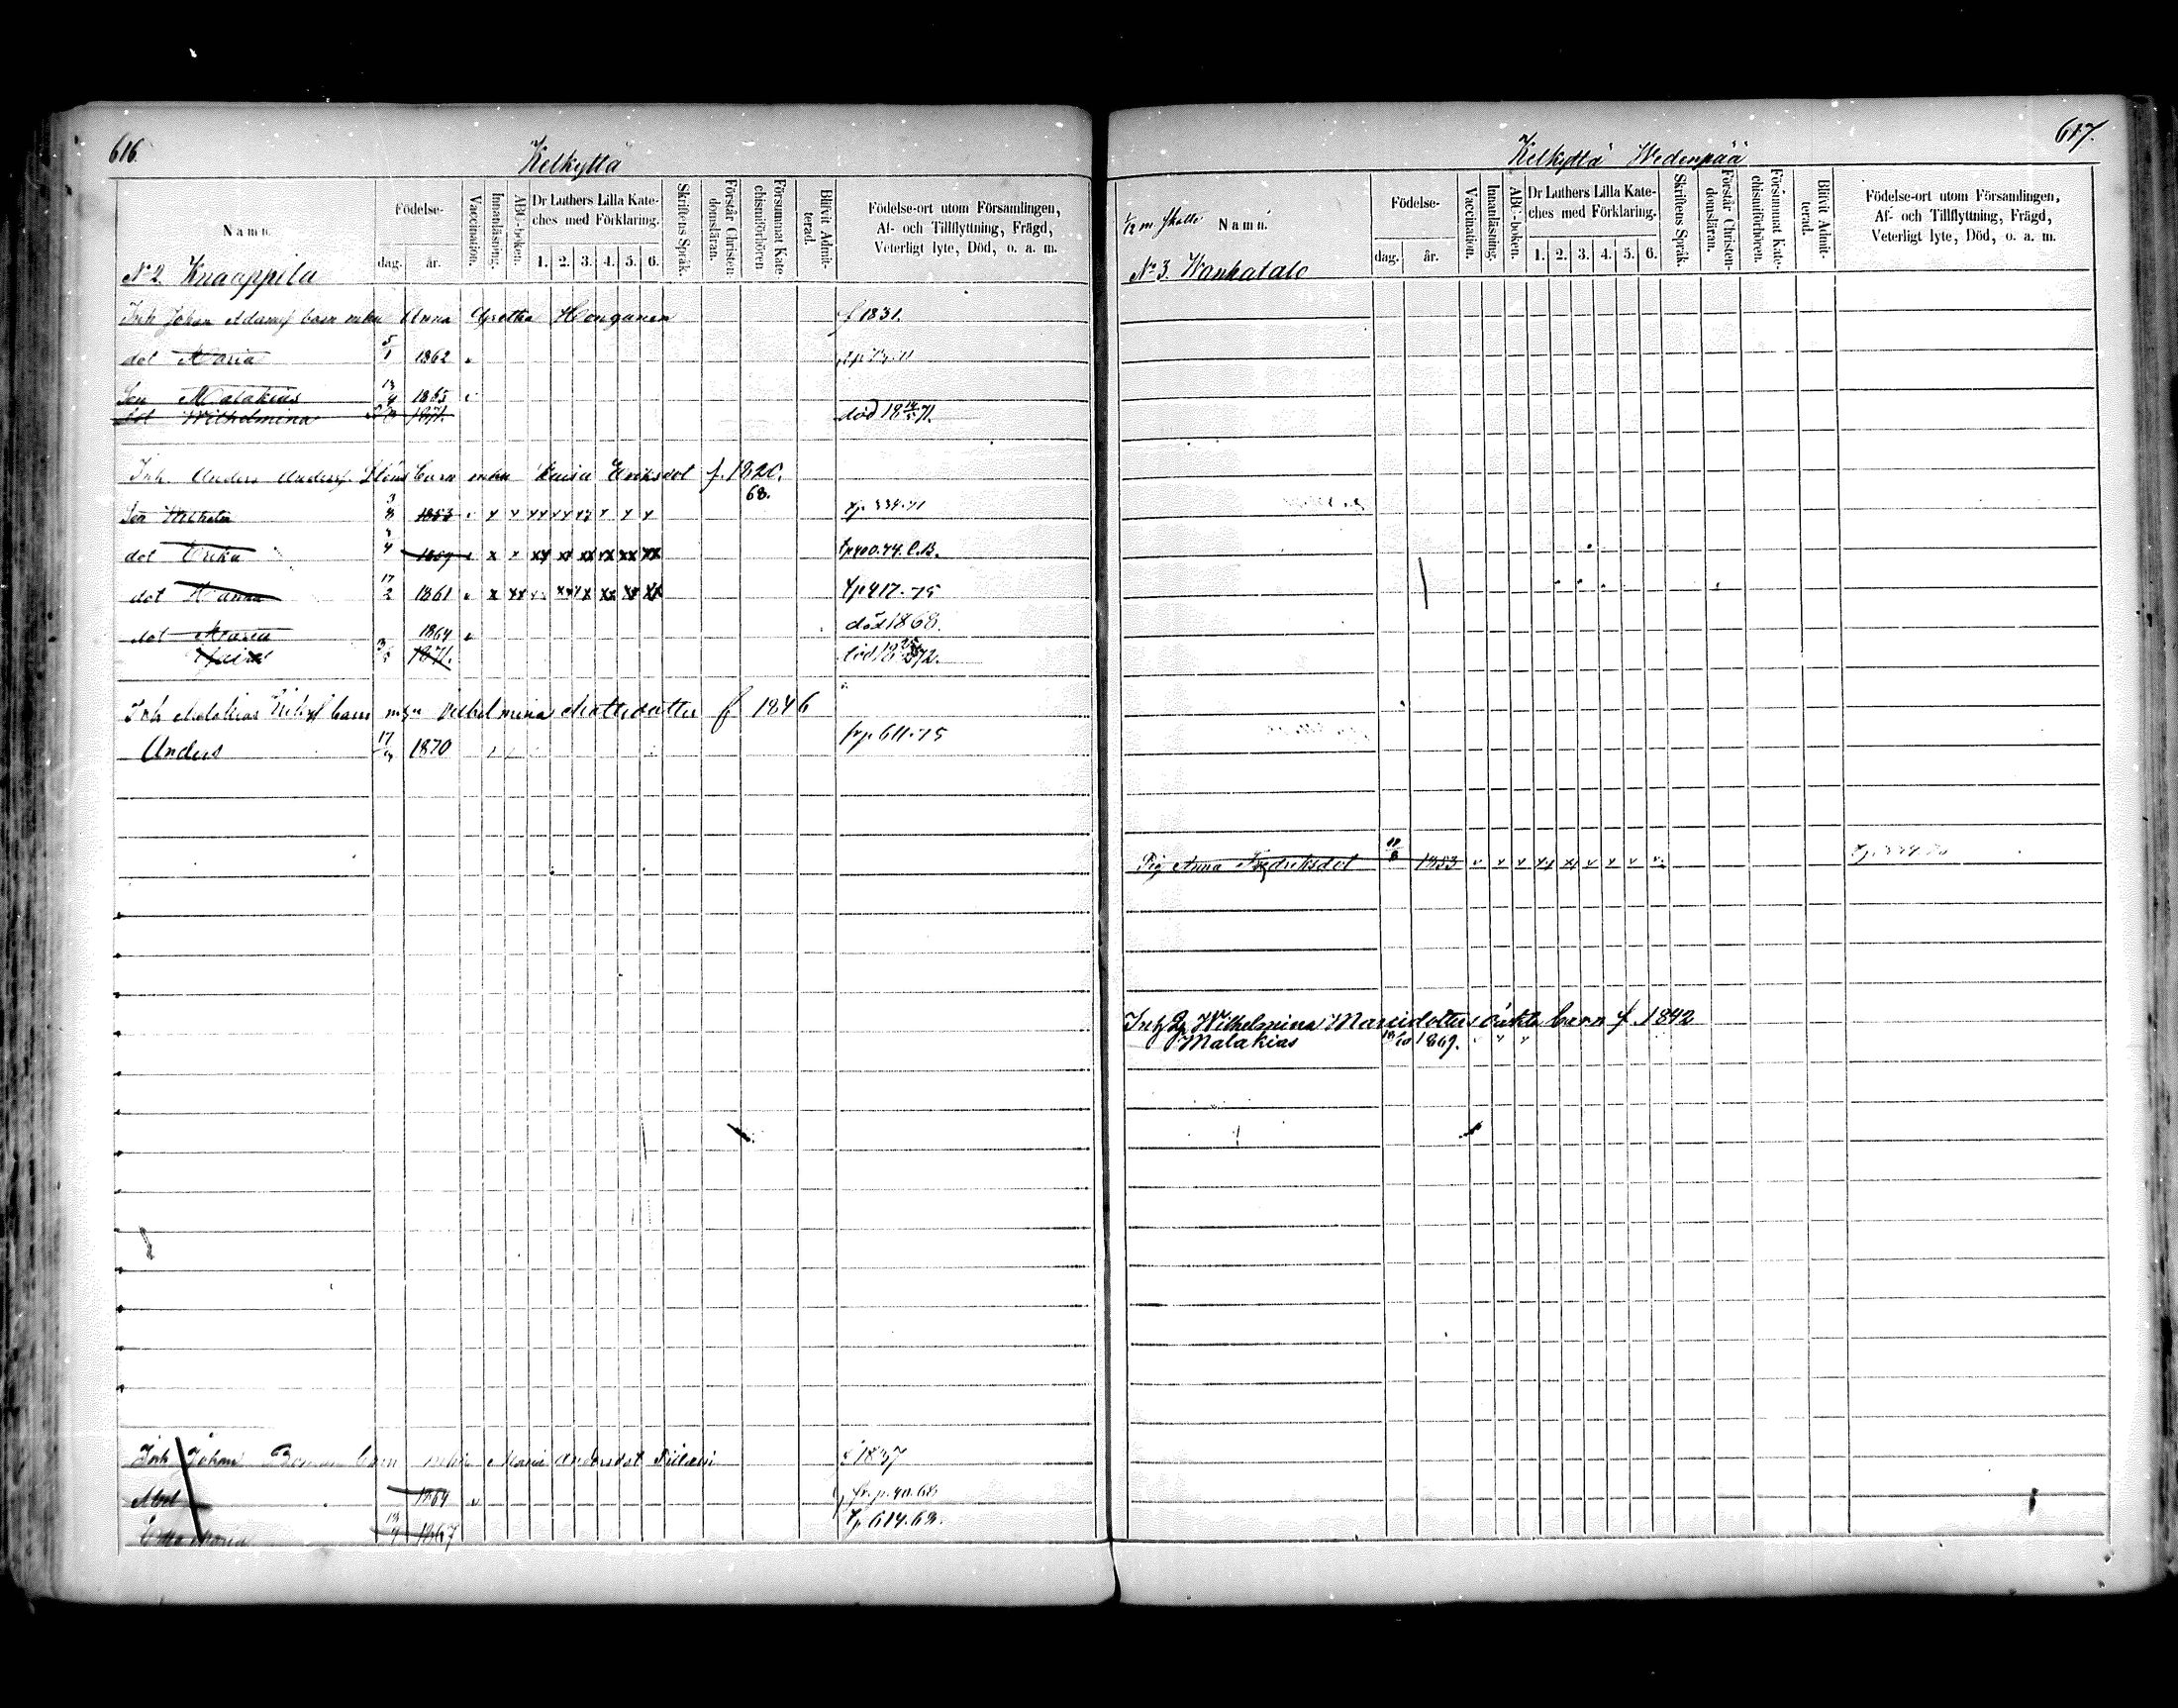 616.
Kelkyttä
Namn.
Födelse-
dag.
år.
Vaccination.
Innanläsning.
ABC-boken.
Dr Luthers Lilla Kateches med Förklaring.
1. 2. 3. 4. 5. 6.
Skriftens Språk.
Förstår Christendomsläran.
Försummat Katechismiförhören
Blifvit Admitterad.
Födelse-ort utom Församlingen,
Af- och Tillflyttning, Frägd,
Veterligt lyte, Död, o. a. m.
No 2. Knaappila
Inh Johan Adamss barn mhu Anna Gretha Honganen f 1831.
dot Maria 5/1 1862
Son Malakias 13/4 1865
dot Wilhelmina 1871. död 18 14/5 71.
Inh. Anders Anderss barn mhu Luisa Eriksdot f. 1820.
68.
Son Wilhelm 3/8 1853 v x v xx xx x x x tp 334.71
dot Erika 4 1859 x x xx xx xx xx xx xx tp 400.74. C.B.
dot Hanna 17/2 1861 x xx xx x xx xx xx tp 417.75
dot Maria 1864 död 1868.
1871. död 1872.
Inh Malakias barn mhu Vilhelmina Mattsdotter f 1846
Anders 17 1870 frp 611.75
Inh Johan barn mhu Maria Andersdot f 1837
Abel 1864 v fr. p. 40.68
Maria 13/4 1867 tp 614.68.
617.
Kelkyttä Wedenpää
1/2 m. skatte
Namn.
Födelse-
dag.
år.
Vaccination.
Innanläsning.
ABC-boken.
Dr Luthers Lilla Kateches med Förklaring.
1. 2. 3. 4. 5. 6.
Skriftens Språk.
Förstår Christendomsläran.
Försummat Katechismiförhören.
Blifvit Admitterad.
Födelse-ort utom Församlingen,
Af- och Tillflyttning, Frägd,
Veterligt lyte, Död, o. a. m.
No 3. Wanhatalo
Pig Anna Fredriksdot 11/8 1853 v v v xx xx v v v v
Inh Wilhelmina Mariedotters oäkta barn f. 1842
Malakias 18/10 1869. v v v